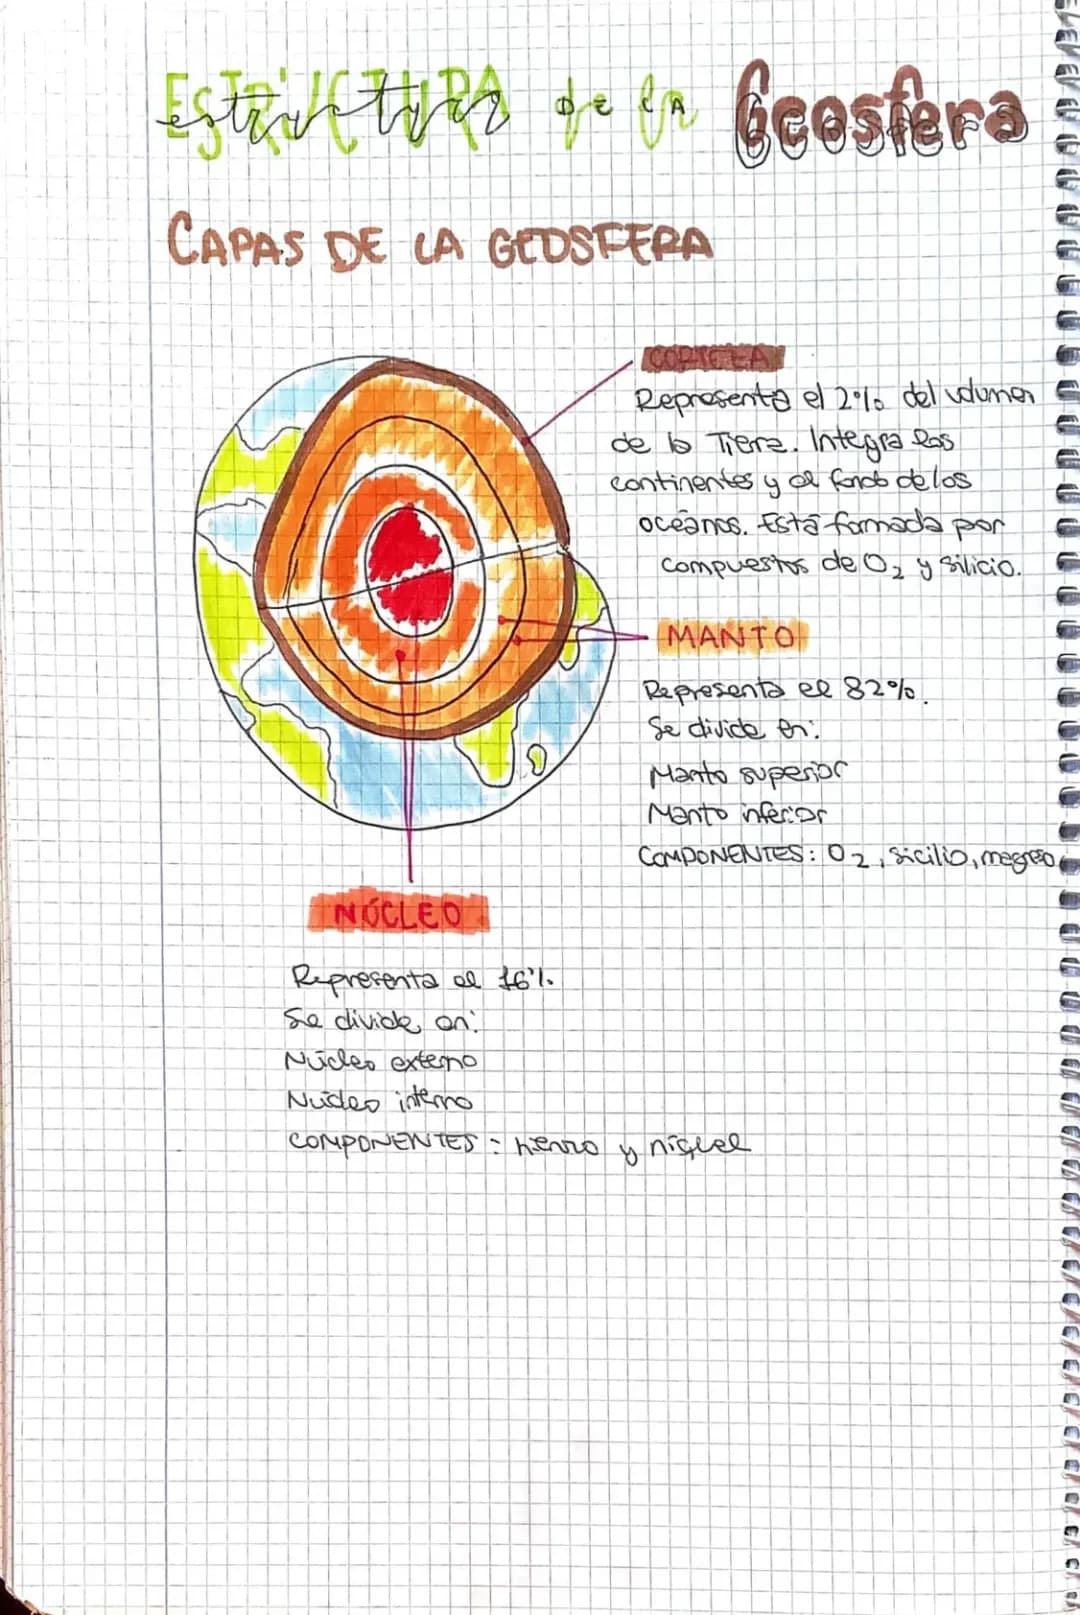 ESTRUCTURA DE LA Geosfera
CAPAS DE LA GEOSFERA
CORTEZA
Representa el 2% del volumen
de la Tierra. Integra las
continentes y el fondo de los
océanos. Está formada por
compuestos de O2 y silicio.
MANTO
Representa el 82%.
Se divide en:
Manto superior
Manto inferior
COMPONENTES: O2, sicilio, magnesio
NÚCLEO
Representa el 16%.
Se divide en:
Núcleo externo
Nucleo interno
COMPONENTES: hierro y níquel